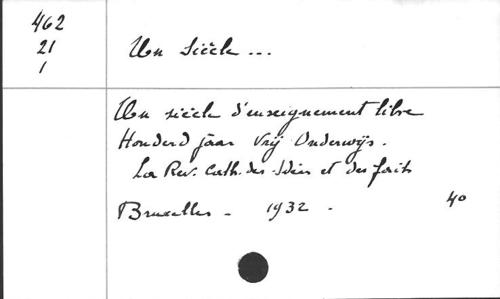 462
21
1
Un Siècle ...
Un siècle d'enseignement libre
Honderd jaar Vrij Onderwijs.
La Rev. Cath. des Idées et des faits
Bruxelles - 1932 -
40